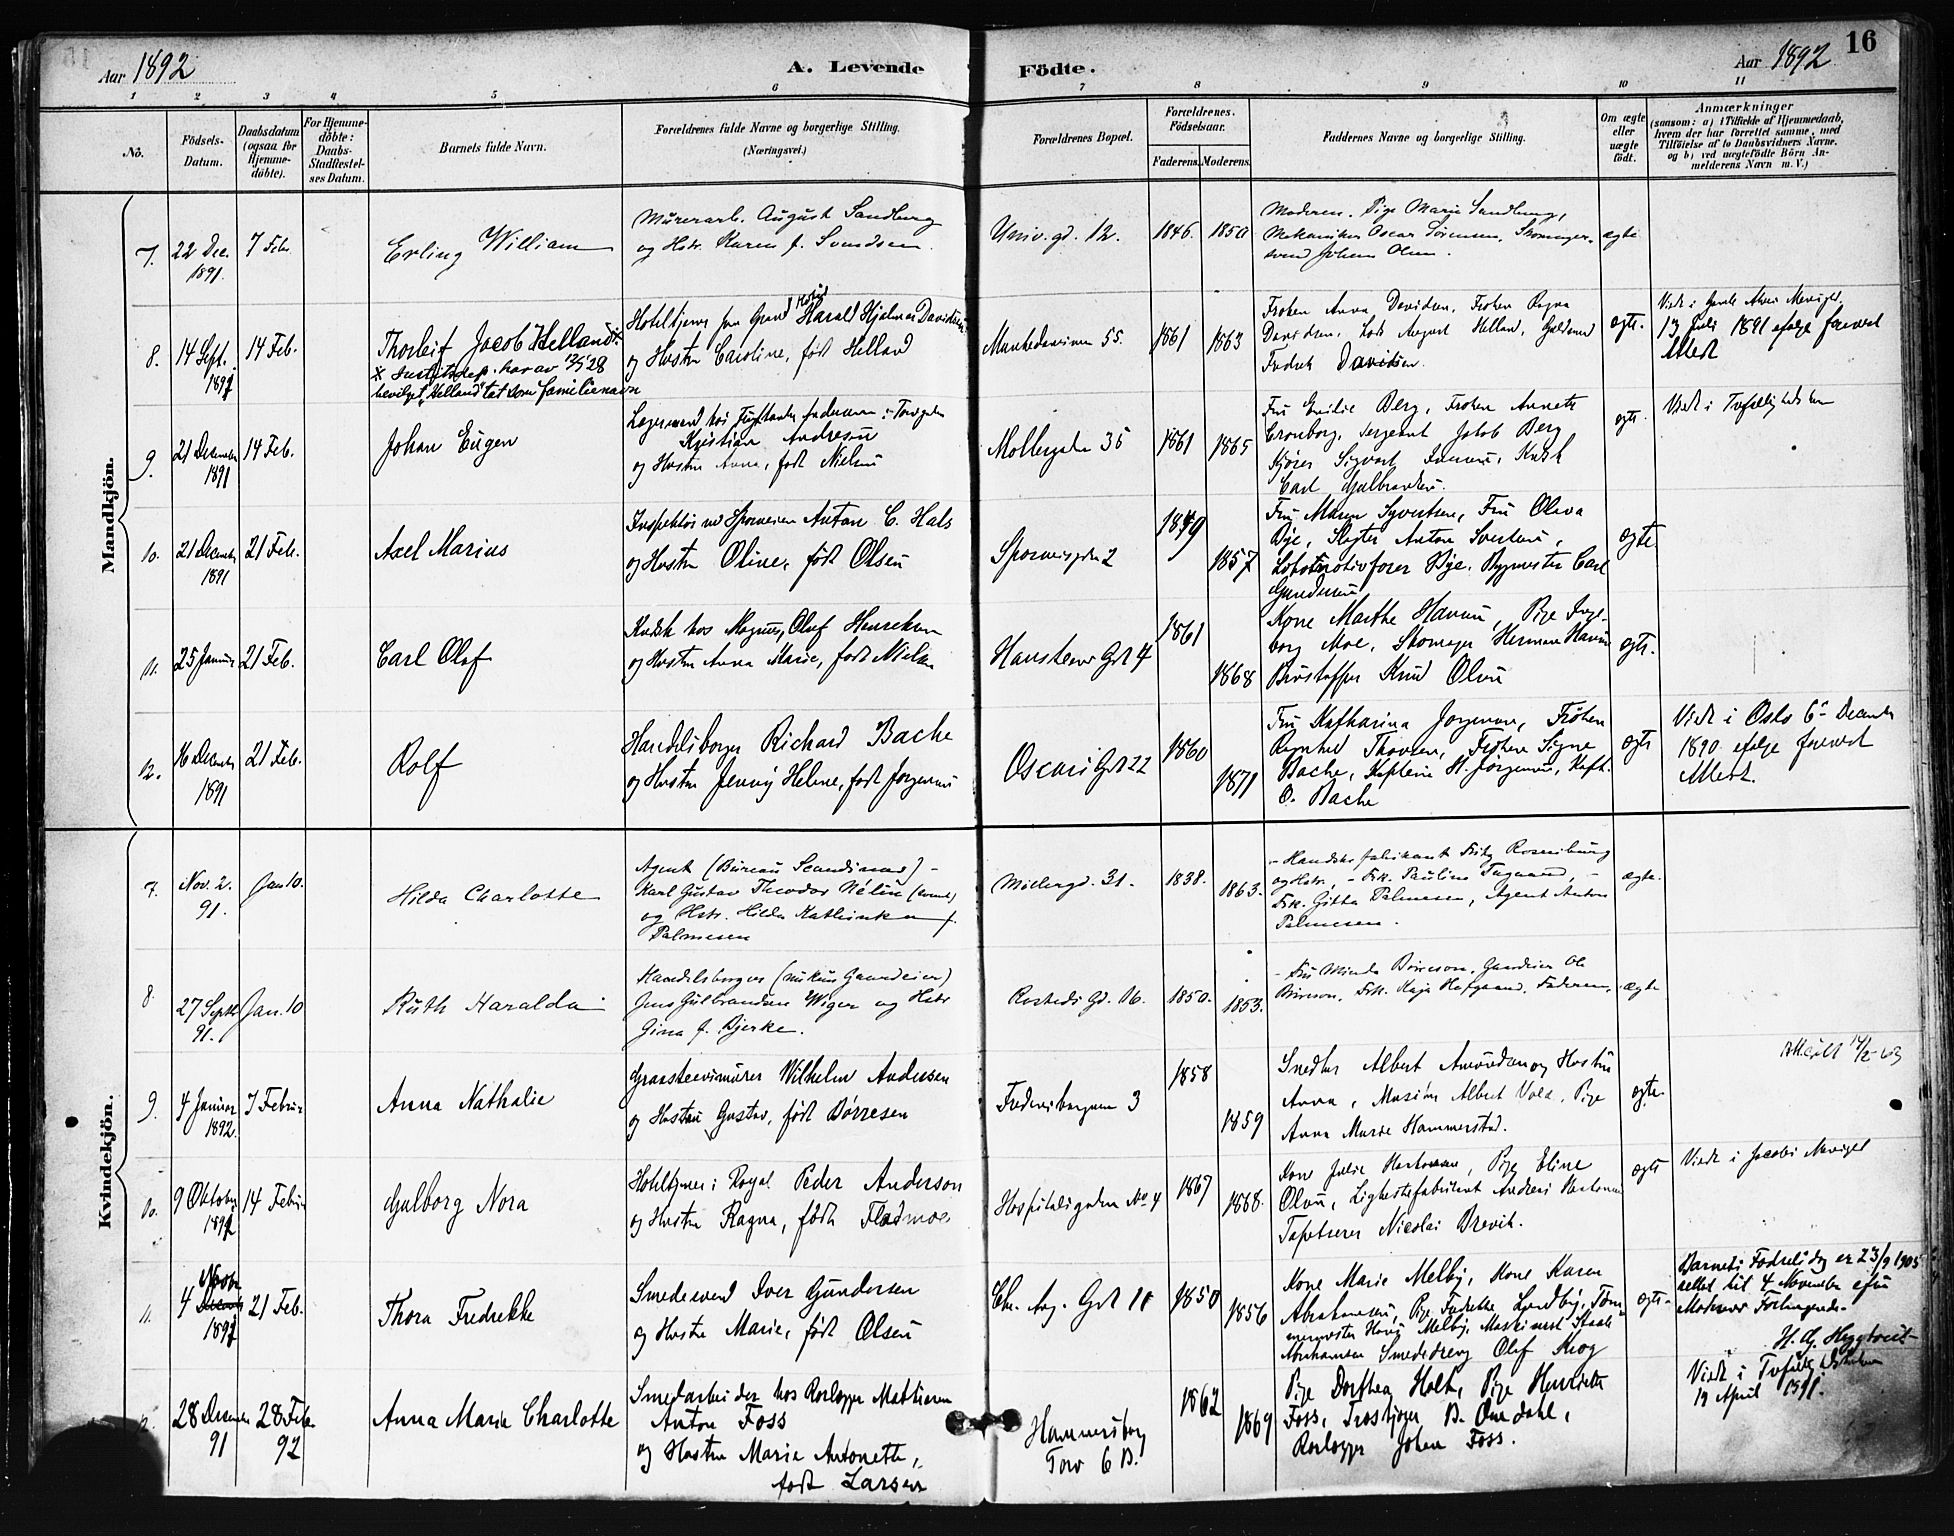 Aar 1892
A. Levende
Födte.
Aar 1892
16
1 2 3 4 5 6 7 8 9 10 11
No.
Födsels-
Datum.
Daabsdatum
(ogsaa for
Hjemme-
döbte).
For Hjemme-
döbte:
Daabs-
Stadfæstel-
ses Datum.
Barnets fulde Navn.
Forældrenes fulde Navne og borgerlige Stilling.
(Næringsvei.)
Forældrenes Bopæl.
Forældrenes
Födselsaar.
Faderens. Moderens.
Faddernes Navne og borgerlige Stilling.
Om ægte
eller
uægte
födt.
Anmærkninger
(saasom: a) i Tilfælde af Hjemmedaab,
hvem der har forrettet samme, med
Tilföielse af to Daabsvidners Navne,
og b) ved uægtefödte Börn An-
melderens Navn m. V.)
Mandkjön.
7.
22 Dec.
1891.
7 Feb.
Erling William
Murerarb. August Sandberg
og Hstr. Karen f. Svendsen.
Univ. gd. 12.
1846. 1850
Moderen. Pige Marie Sandberg,
Mekaniker Oscar Sørensen, Skomager-
svend Johan Olsen.
ægte
8.
14 Sept.
1891
14 Feb.
Thorleif Jacob Helland x
x Justitsdep. har av 12/5 28
bevilget "Helland" tat som familienavn
Hoteltjener paa Grand Hotel Harald Hjalmar Davidsen
og Hustru Caroline, født Helland
Munkedamsveien 55.
1861 1863
Frøken Anna Davidsen, Frøken Ragna
Davidsen, August Helland,
Fredrik Davidsen.
ægte.
Viet i Gamle Akers Menighed
13 Juli 1891 ifølge forevist
Attest
9.
21 December
1891
14 Feb.
Johan Eugen
Lagermand hos Andersen i Torvgaden
Kristian Andresen
og Hustru Anna, født Nielsen
Møllergaden 35
1861 1865
Fru Emilie Berg, Frøken Annette
Cronborg, Sergeant Jakob Berg
Kjører Sigvart Iversen, Kusk
Carl Gulbrandsen.
ægte.
Viet i Trefoldighedskirken
10.
21 December
1891
21 Feb.
Axel Marius
Inspektør ved Sporveien Anton C. Hals
og Hustru Oline, født Olsen
Sporveisgaden 2
1849
1857
Fru Maren Syvertsen, Fru Oleva
Bye, Slagter Anton Syvertsen,
Lokomotivfører Bye, Bygmester Carl
Gundersen
ægte.
11.
25 Januar
21 Feb.
Carl Olaf
Kusk hos Magnus, Oluf Henriksen
og Hustru Anna Marie, født Nielsen
Hansteens Gd 4
1861
1868
Kone Marthe Hansen, Pige Inge-
borg Moe, Skomager Herman Hansen
Knud Olsen
ægte.
12.
16 December
1891
21 Feb.
Rolf
Handelsborger Richard Bache
og Hustru Jenny Helene, født Jørgensen
Oscars Gd 22
1860
1871
Fru Katharina Jørgensen, Frøken
Ragnhild Thoresen, Frøken Signe
Bache, Kaptein H. Jørgensen, Kapt.
O. Bache
ægte
Viet i Oslo 6te December
1890 ifølge forevist
Attest.
Kvindekjön.
7.
Nov. 2.
91.
Jan 10.
Hilda Charlotte
Agent (Bureau Scandinav) -
Karl Gustav Theodor Nelin (svensk)
og Hstr. Hilda Kathinka f.
Palmesen
Møllergd. 31.
1838. 1863.
- Handskefabrikant Fritz Rosenburg
og Hstr, - Frk. Pauline
Frk. Gitta Palmesen, Agent Anton
Palmesen.
ægte.
8.
27 Septb.
91.
Jan. 10
Ruth Haralda
Handelsborger (nu kun Gaardeier)
Jens Gulbrandsen Wiger og Hstr
Gina f. Bjerke.
Rosteds Gd. 16.
1850. 1853.
- Fru Minda Børreson, Gaardeier Ole
Børreson, Frk. Kaja Hofgaard, Faderen.
ægte
9.
4 Januar
1892.
7 Februar
Anna Nathalie
Graasteensmurer Wilhelm Andersen
og Hustru Gustava, født Børresen
Fredensborgveien 3
1858
1859
Smedter Albert Amundsen og Hustru
Anna, Albert Vold, Pige
Anna Marie Hammerstad.
ægte.
10.
9 Oktober
1891
14 Februar
Gulborg Nora
Hoteltjener i Royal Peder Anderson
og Hustru Ragna, født Flodmoe
Hospitalsgaden No 4
1867
1868.
Kone Julie, Pige Eline
Olsen, Ligkistefabrikant Andreas
Tapetserer Nicolai Brevik.
ægte
Viet i Jacobs Menighed
11.
4 Novbr
1891
21 Feb.
Thora Fredrikke
Smedesvend Iver Gundersen
og Hustru Marie, født Olsen
Chr. Aug. Gd 11
1850
1856
Kone Marie Melby, Kone Karen
Abrahamsen, Pige Fredrikke Lyndby, Tøm-
mermester Hans Melby, Maskinist
Abrahamsen Smededreng Olaf Krog
ægte.
Barnets Fødselsdag er 23/9 1905
rettet til 4 November efter
Moderens Forlangende.
12.
28 December
91
28 Feb.
92
Anna Marie Charlotte
Smedarbeider hos Rørlægger Mathisen
Anton Foss
og Hustru Marie Antonette,
født Larsen
Hammersborg
Torv 6 B.
1862
1869
Pige Dorthea Holt, Pige Henriette
Foss, B. Omdahl,
Rørlægger Johan Foss.
Viet i Trefoldighedskirken
19 April 1891.